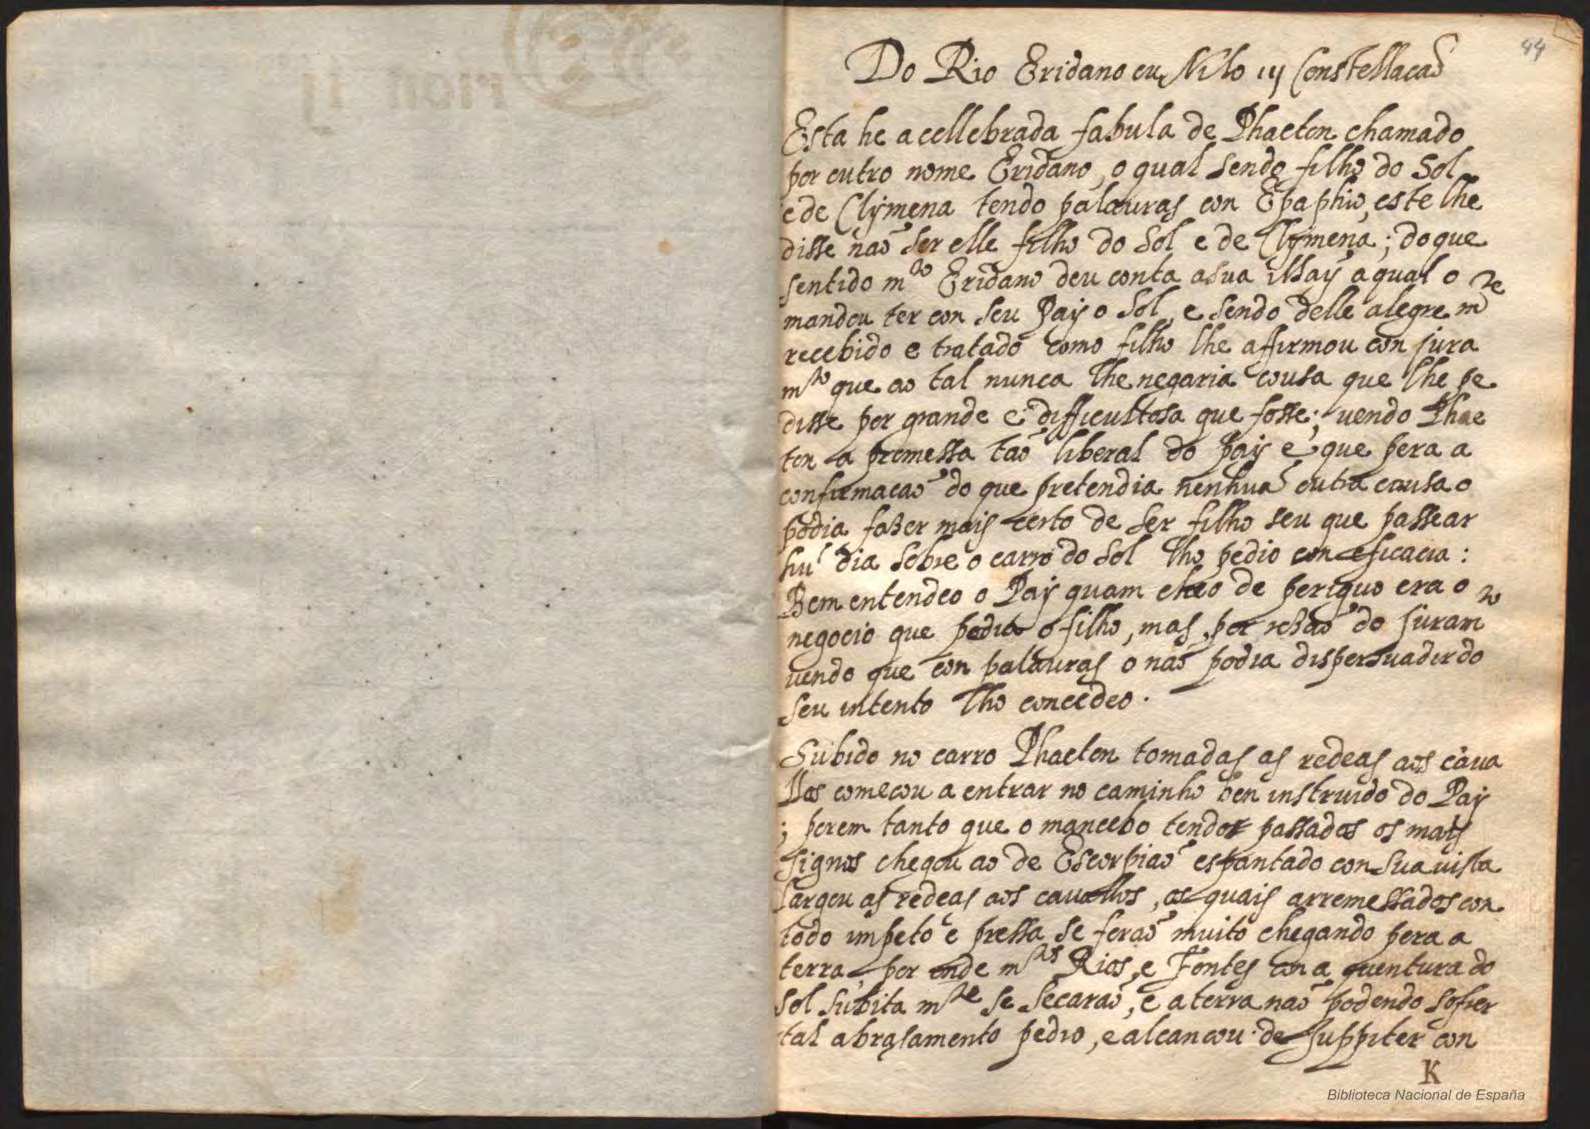 44
Do Rio Eridano ou Nilo iij Constellacaõ
Esta he a cellebrada fabula de Phaeton chamado
por outro nome Eridano, o qual sendo filho do Sol
e de Clÿmena tendo palauras con Epaphio, este lhe
disse naõ ser elle filho do Sol e de Clÿmena; do que
sentido m.to Eridano deu conta a sua Maÿ a qual o
mandou ter con seu Paÿ o Sol, e sendo delle alegre m.te
recebido e tratado como filho lhe affirmou con jura
m.to que ao tal nunca lhe negaria cousa que lhe pe
disse por grande e difficultosa que fosse; uendo Phae
ton a promessa taõ liberal do paÿ e que pera a
confirmacaõ do que pretendia nenhuã outra cousa o
podia fazer mais certo de ser filho seu que passear
hũ dia sobre o carro do Sol lho pedio con eficacia:
Bem entendeo o Paÿ quam cheo de periguo era o
negocio que pedia o filho, mas por rezaõ do juram.to
uendo que con palauras o naõ podia dispersuadir do
seu intento lho concedeo.
Subido no carro Phaeton tomadas as redeas aos caua
llos comecou a entrar no caminho ben instruido do Paÿ
; porem tanto que o mancebo tendo passados os mais
signos chegou ao de Escorpiaõ espantado con sua uista
largou as redeas aos cauallos, os quais arremessados con
todo impeto e pressa se foraõ muito chegando pera a
terra, por onde m.tos Rios, e Fontes con a quentura do
Sol subita m.te se secaraõ, e a terra naõ podendo sofrer
tal abrasamento pedio, e alcancou de Juppiter con
K
Biblioteca Nacional de España